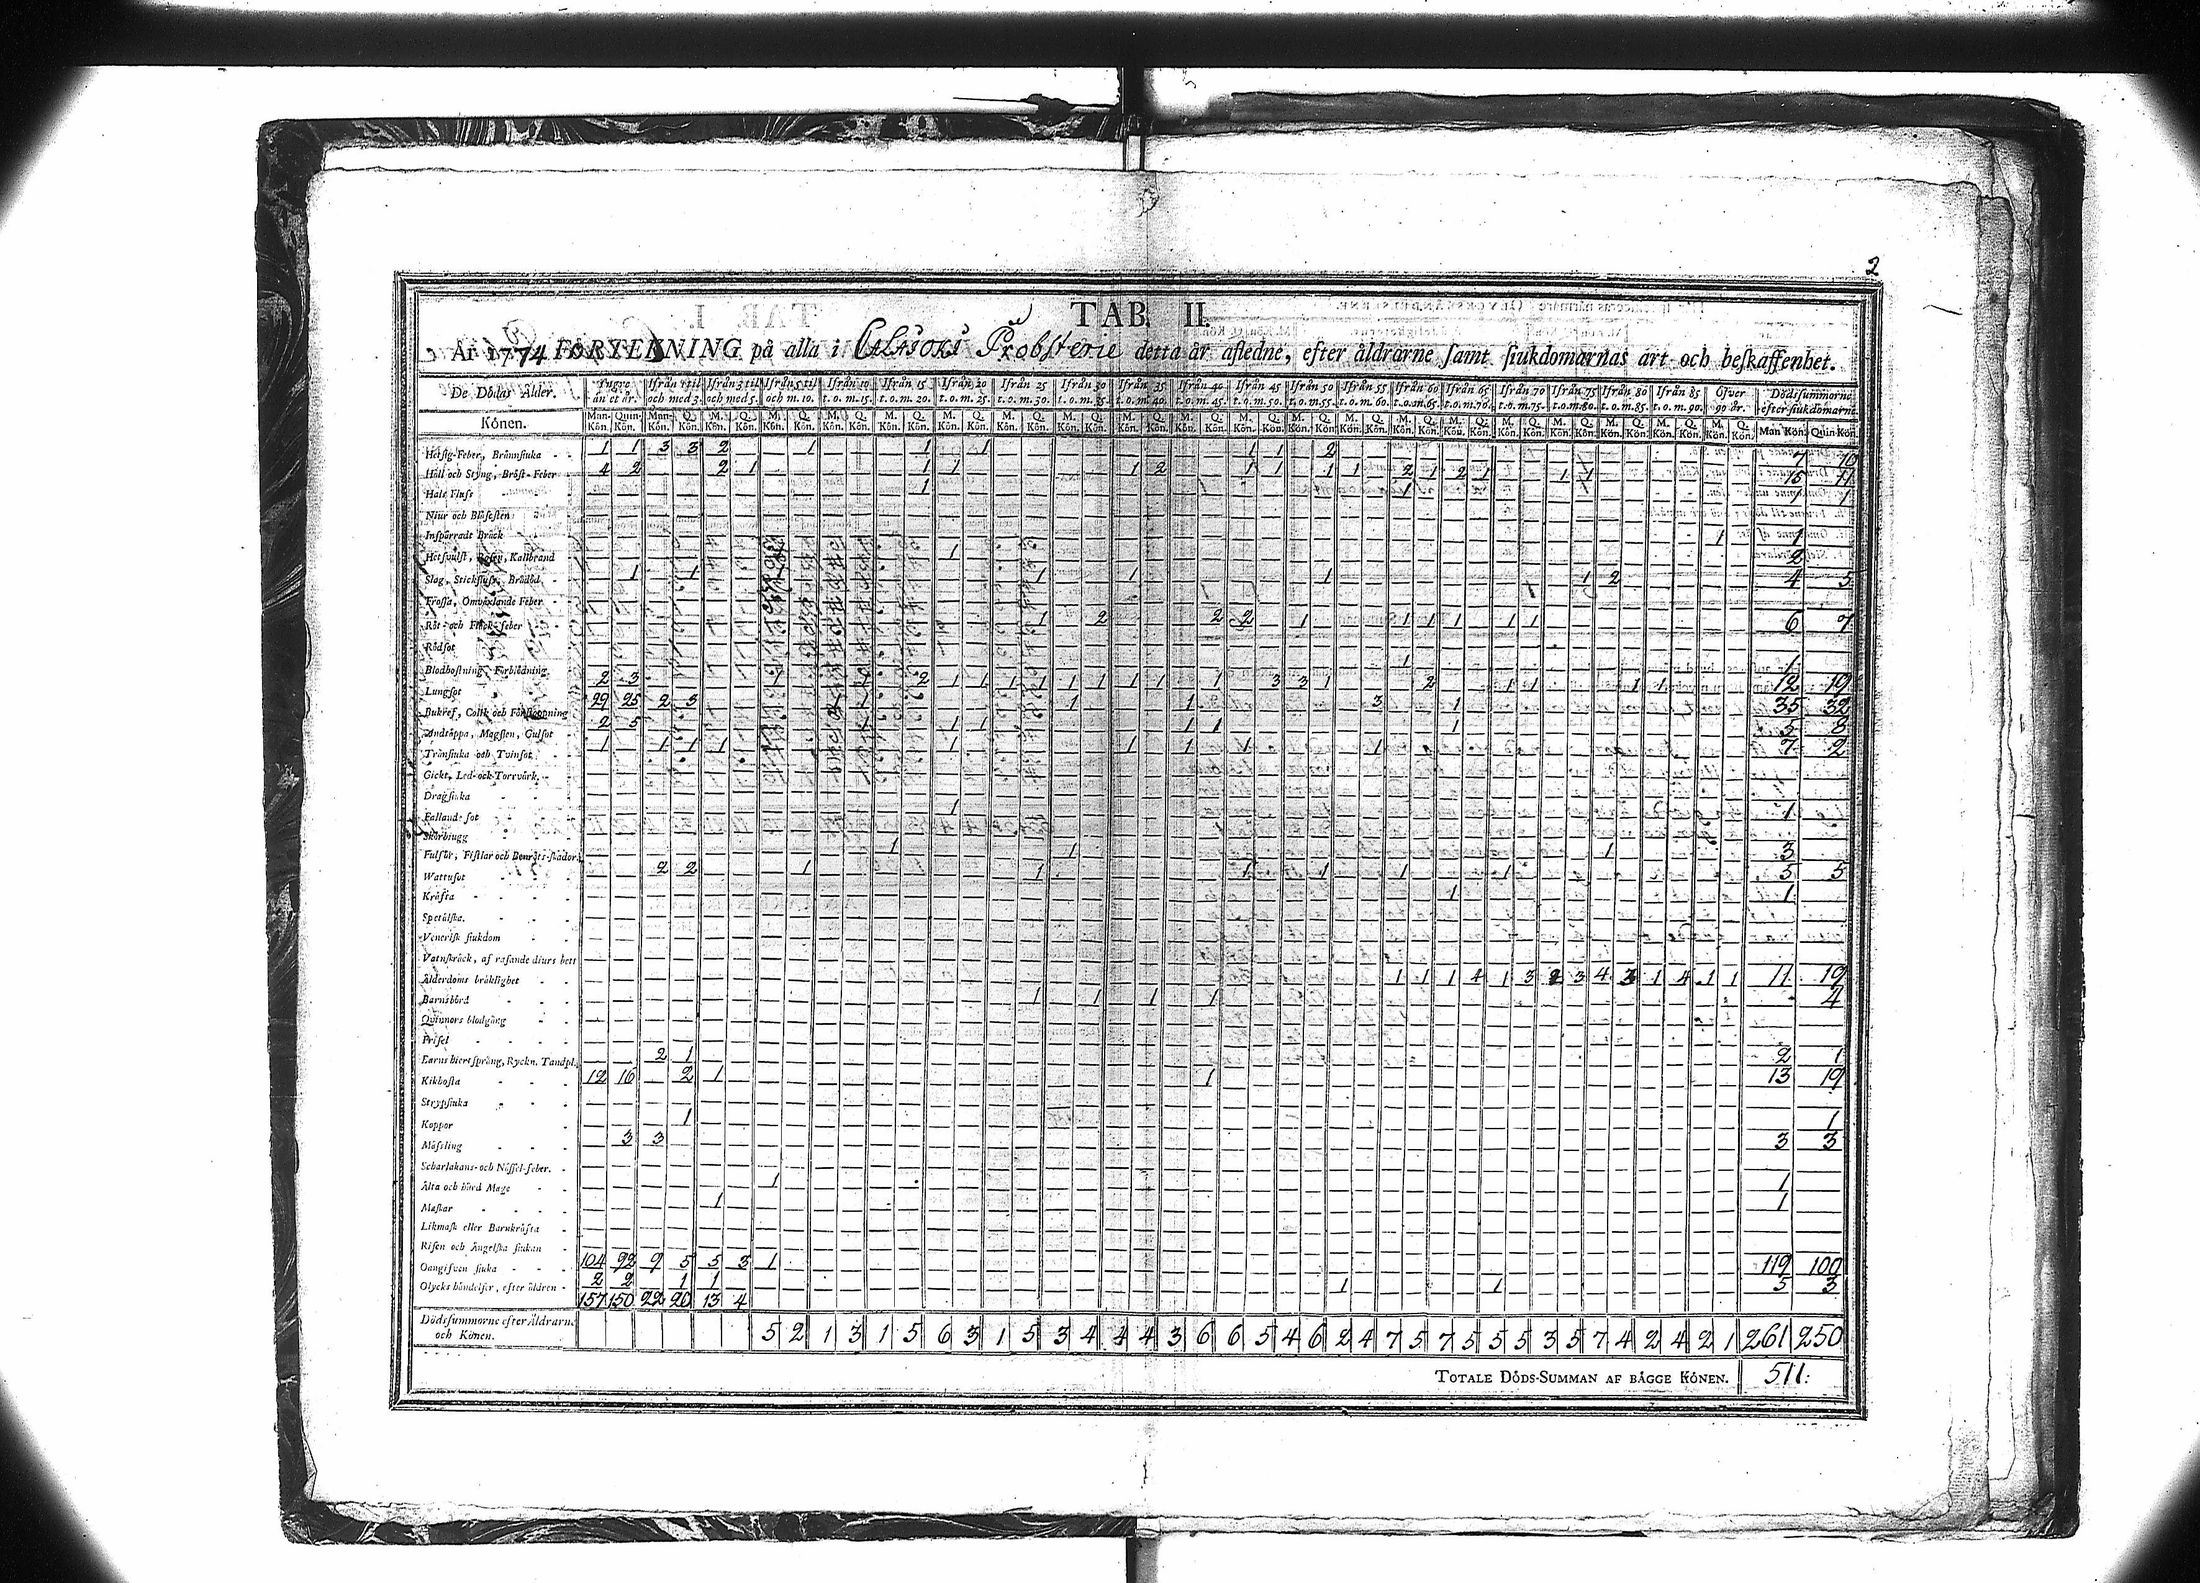 2
TAB. II.
År 1774 FÖRTEKNING på alla i CALAJOKI Probsterie detta år afledne, efter åldrarne samt siukdomarnas art och beskaffenhet.
De Dödas Ålder. Yngre än et år. Ifrån 1 til och med 3. Ifrån 3 til och med 5. Ifrån 5 til och m. 10. Ifrån 10 t.o.m. 15. Ifrån 15 t.o.m. 20. Ifrån 20 t.o.m. 25. Ifrån 25 t.o.m. 30. Ifrån 30 t.o.m. 35. Ifrån 35 t.o.m. 40. Ifrån 40 t.o.m. 45. Ifrån 45 t.o.m. 50. Ifrån 50 t.o.m. 55. Ifrån 55 t.o.m. 60. Ifrån 60 t.o.m. 65. Ifrån 65 t.o.m. 70. Ifrån 70 t.o.m. 75. Ifrån 75 t.o.m. 80. Ifrån 80 t.o.m. 85. Ifrån 85 t.o.m. 90. Öfver 90 år. Dödssummorne efter siukdomarne.
Könen. Man-Kön. Quin-Kön. Man-Kön. Q. Kön. M. Kön. Q. Kön. Man Kön. Quin Kön.
Hetsig-Feber, Brännsiuka 1 1 3 3 2 1 1 1 1 1 2 7 10
Håll och Styng, Bröst-Feber 4 2 2 1 1 1 1 2 1 1 1 1 2 1 2 1 1 1 15 11
Hals Fluss 1 1 1
Niur och Blåsesten
Inspärradt Bråck 1 1
Hetsvulst, Rosen, Kallbrand 1 2
Slag, Stickfluss, Brådöd 1 1 1 1 1 1 2 4 5
Frossa, Omväxlande Feber
Röt- och Fläck-feber 1 2 2 2 1 1 1 1 1 1 6 7
Rödsot
Blodhostning, Förblödning 1 1
Lungsot 2 3 1 2 2 1 1 1 1 1 1 1 1 1 3 3 1 2 1 1 1 1 12 19
Bukref, Colik och Förstoppning 29 25 2 3 1 1 3 1 35 32
Andtäppa, Magsten, Gulsot 2 5 1 1 1 1 1 5 8
Trånsiuka och Tvinsot 1 1 1 1 1 1 1 1 1 7 2
Gickt, Led-och Torrvärk
Dragsiuka
Falland-sot 1 1
Skörbiugg
Fulsår, Fistlar och Benröts-skador 1 1 1 3
Wattusot 2 2 1 1 1 1 1 1 3 5
Kräfta 1 1
Spetälska.
Venerisk siukdom
Vatuskräck, af rasande diurs bett
Ålderdoms bräklighet 1 1 1 4 1 3 2 3 4 1 4 1 1 11 19
Barnsbörd 1 1 1 1 4
Quinnors blodgång
Prisel
Barns hiertsprång, Ryckn. Tandpl. 2 1 2 1
Kikhosta 12 16 2 1 1 13 19
Strypsiuka
Koppor 1 1
Mässling 3 3 3 3
Scharlakans-och Nässel-feber.
Älta och hård Mage 1 1
Maskar 1 1
Likmask eller Barnkräfta
Risen och Ängelska siukan
Oangifven siuka 104 92 9 5 5 3 1 119 100
Olycks händelser, efter åldren 2 2 1 1 1 1 5 3
157 150 22 20 13 4
Dödssummorne efter Åldrarne och Könen. 5 2 1 3 1 5 6 3 1 5 3 4 4 4 3 6 6 5 4 6 2 4 7 5 7 5 5 5 3 5 7 4 2 4 2 1 261 250
TOTALE DÖDS-SUMMAN AF BÅGGE KÖNEN. 511: